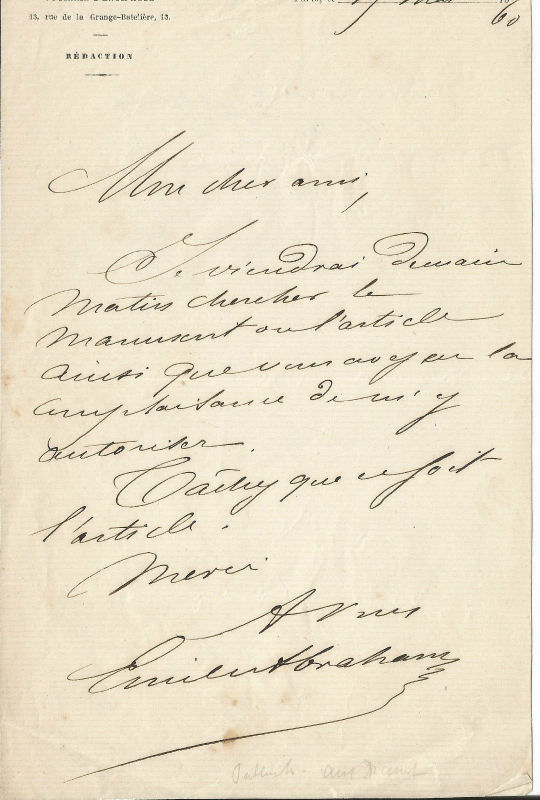 13, rue de la Grange-Batelière, 13.
RÉDACTION
60
Mon cher ami,
Je viendrai demain
matin chercher le
manuscrit ou l'article
ainsi que vous avez eu la
complaisance de m'y
autoriser.
Tâchez que ce soit
l'article.
Merci
A vous
Emile Abraham